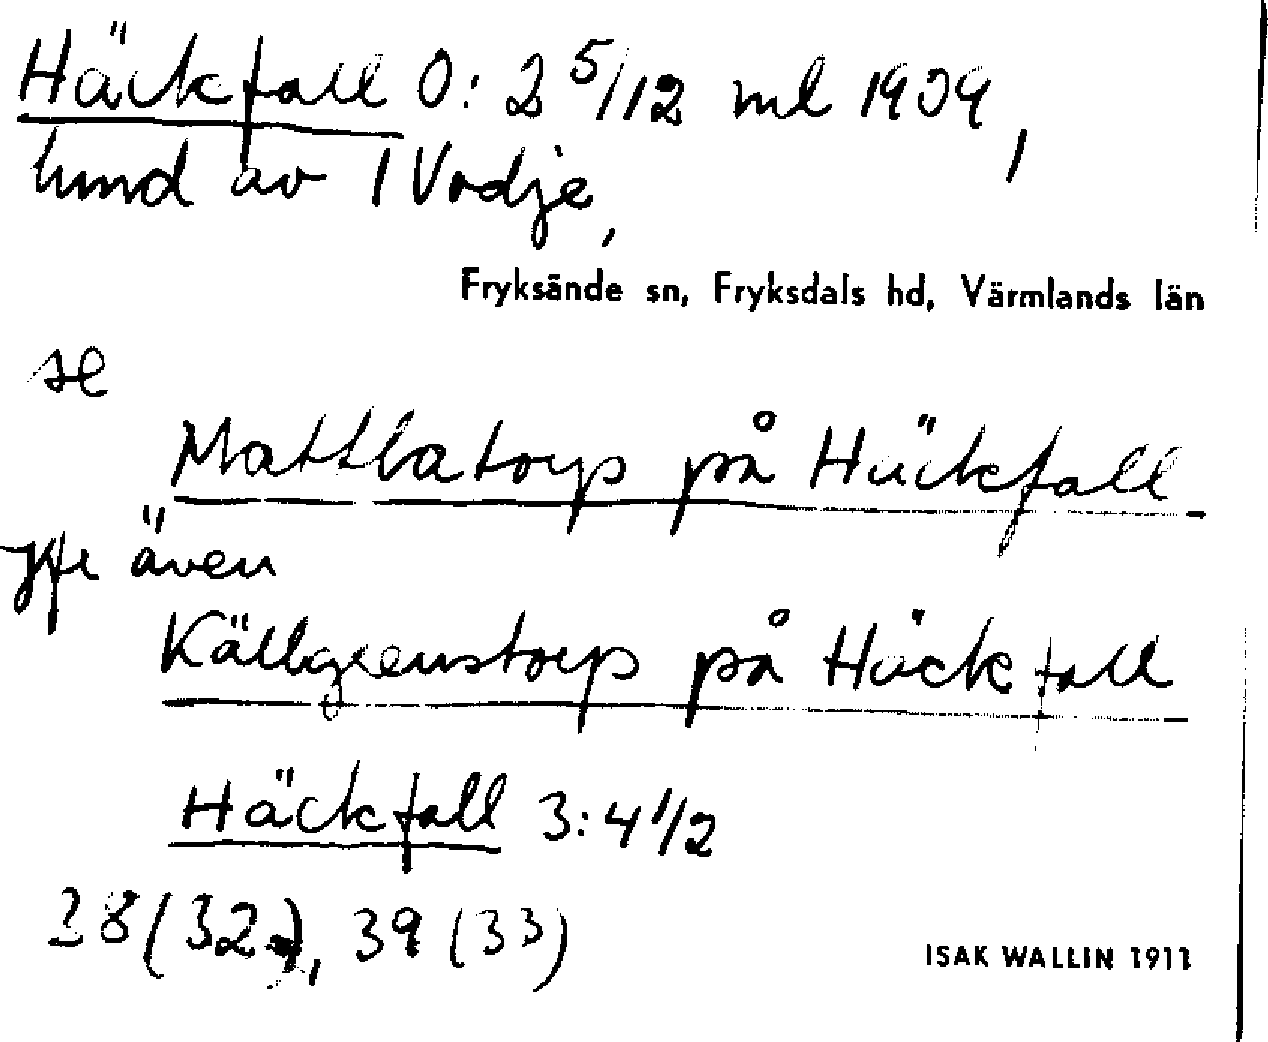 Häckfall 0:2 5/12 ml 1909,
lund av 1 Vodje,
Fryksände sn, Fryksdals hd, Värmlands län
se
Mattbatorp på Häckfall
jfr även
Källgrenstorp på Häckfall
Häckfall 3:4 1/2
38(32), 39(33)
ISAK WALLIN 1911